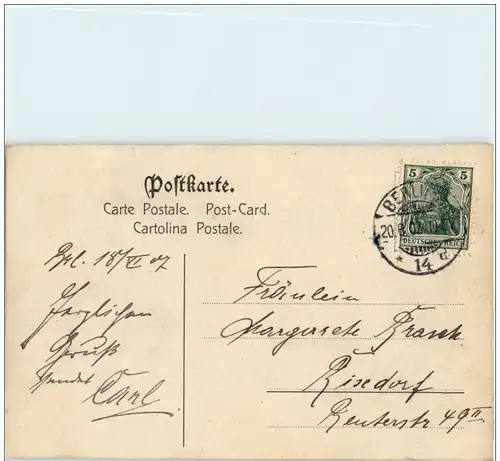 Postkarte.
Carte Postale. Post-Card.
Cartolina Postale.
5 5
DEUTSCHES REICH
BERLIN
20.6.07.
* 14 d
Brl. 18/VI 07
Herzlichen
Gruß
sendet
Carl
Fräulein
Margarete
Rixdorf
Reuterstr 49 II